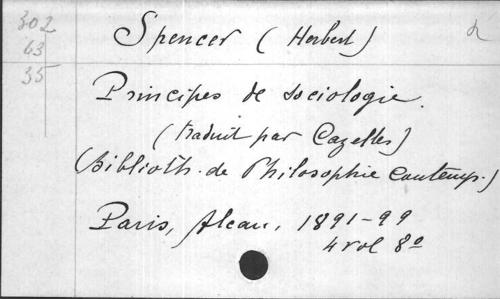 302
63
35
Spencer (Herbert)
Principes de sociologie.
(traduit par Cazelles)
(Biblioth. de Philosophie Contemp.)
Paris, Alcan, 1891-99
4 vol 8º